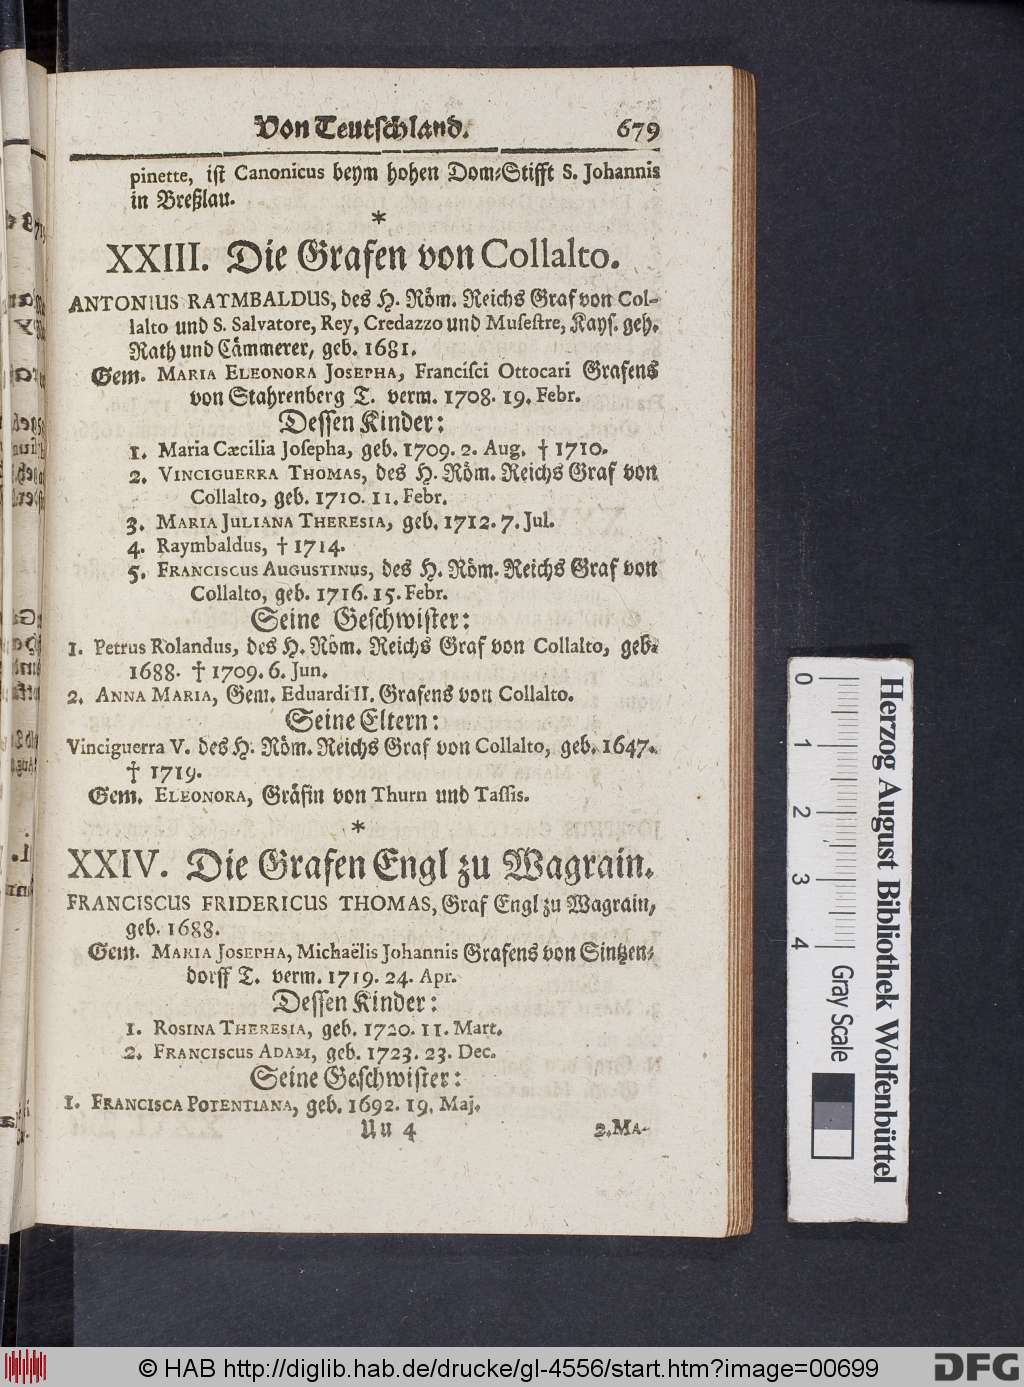 Von Teutschland. 679
pinette, ist Canonicus beym hohen Dom-Stifft S. Johannis
in Breßlau.
*
XXIII. Die Grafen von Collalto.
ANTONIUS RAYMBALDUS, des H. Röm. Reichs Graf von Col-
lalto und S. Salvatore, Rey, Credazzo und Musestre, Kays. geh.
Rath und Cämmerer, geb. 1681.
Gem. MARIA ELEONORA JOSEPHA, Francisci Ottocari Grafens
von Stahrenberg T. verm. 1708. 19. Febr.
Dessen Kinder:
1. Maria Cæcilia Josepha, geb. 1709. 2. Aug. † 1710.
2. VINCIGUERRA THOMAS, des H. Röm. Reichs Graf von
Collalto, geb. 1710. 11. Febr.
3. MARIA JULIANA THERESIA, geb. 1712. 7. Jul.
4. Raymbaldus, † 1714.
5. FRANCISCUS AUGUSTINUS, des H. Röm. Reichs Graf von
Collalto, geb. 1716. 15. Febr.
Seine Geschwister:
1. Petrus Rolandus, des H. Röm. Reichs Graf von Collalto, geb.
1688. † 1709. 6. Jun.
2. ANNA MARIA, Gem. Eduardi II. Grafens von Collalto.
Seine Eltern:
Vinciguerra V. des H. Röm. Reichs Graf von Collalto, geb. 1647.
† 1719.
Gem. ELEONORA, Gräfin von Thurn und Tassis.
*
XXIV. Die Grafen Engl zu Wagrain.
FRANCISCUS FRIDERICUS THOMAS, Graf Engl zu Wagrain,
geb. 1688.
Gem. MARIA JOSEPHA, Michaëlis Johannis Grafens von Sintzen-
dorff T. verm. 1719. 24. Apr.
Dessen Kinder:
1. ROSINA THERESIA, geb. 1720. 11. Mart.
2. FRANCISCUS ADAM, geb. 1723. 23. Dec.
Seine Geschwister:
1. FRANCISCA POTENTIANA, geb. 1692. 19. Maj.
Uu 4 2. MA-
0 1 2 3 4
Gray Scale
Herzog August Bibliothek Wolfenbüttel
© HAB http://diglib.hab.de/drucke/gl-4556/start.htm?image=00699
DFG